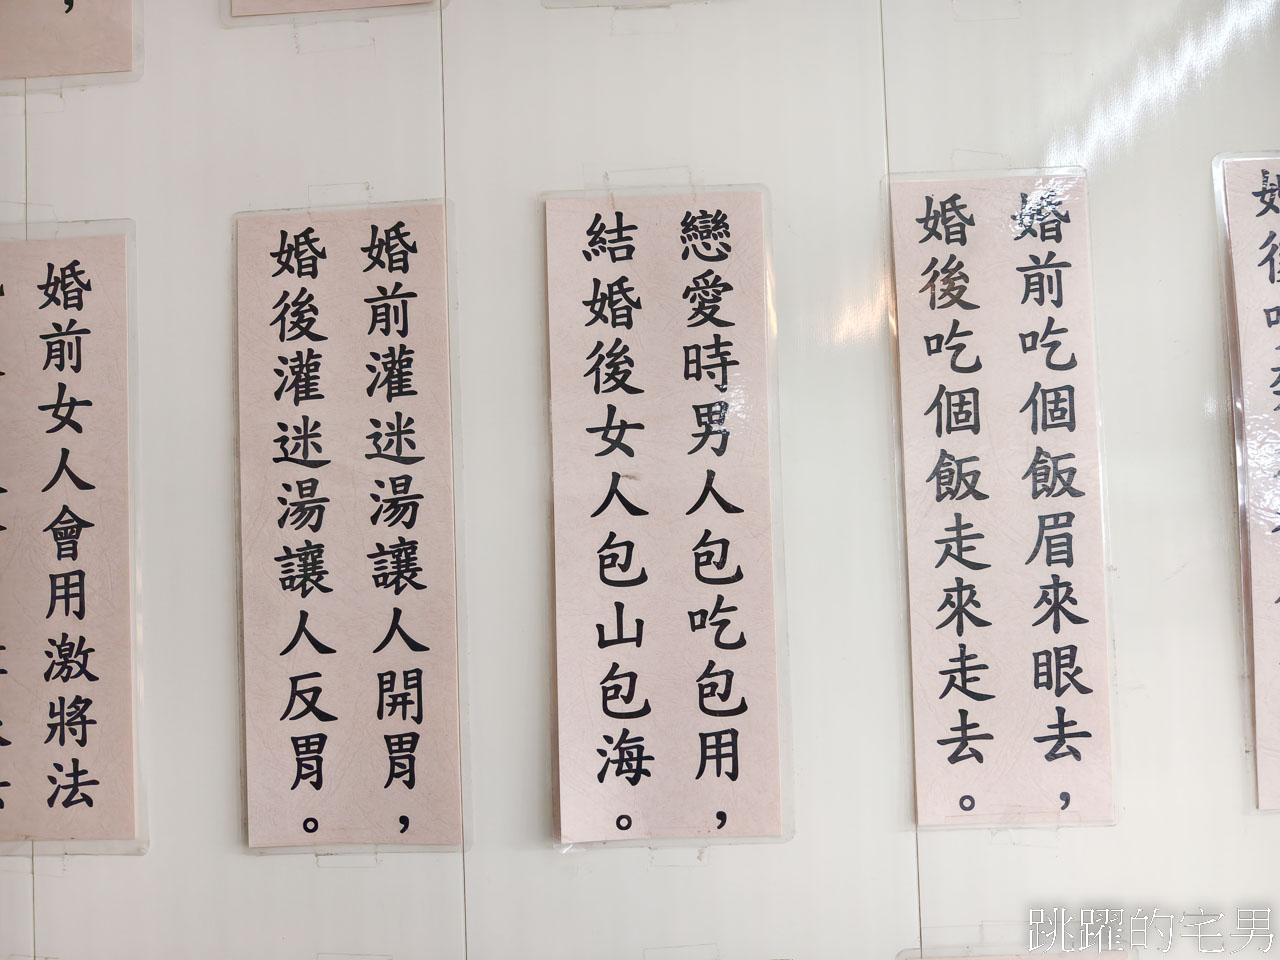 婚後吃個飯走來走去。
婚前吃個飯眉來眼去，
戀愛時男人包吃包用，
結婚後女人包山包海。
婚前灌迷湯讓人開胃，
婚後灌迷湯讓人反胃。
婚前女人會用激將法
跳躍的宅男